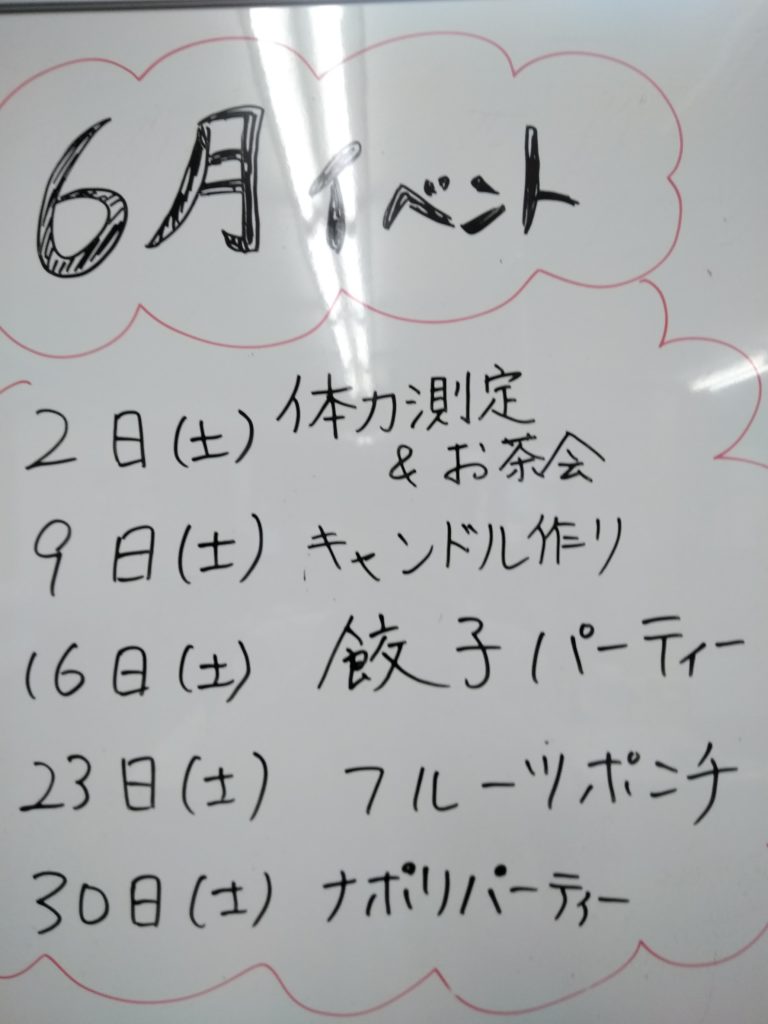 6月イベント
2日(土) 体力測定
& お茶会
9日(土) キャンドル作り
16日(土) 餃子パーティー
23日(土) フルーツポンチ
30日(土) ナポリパーティー